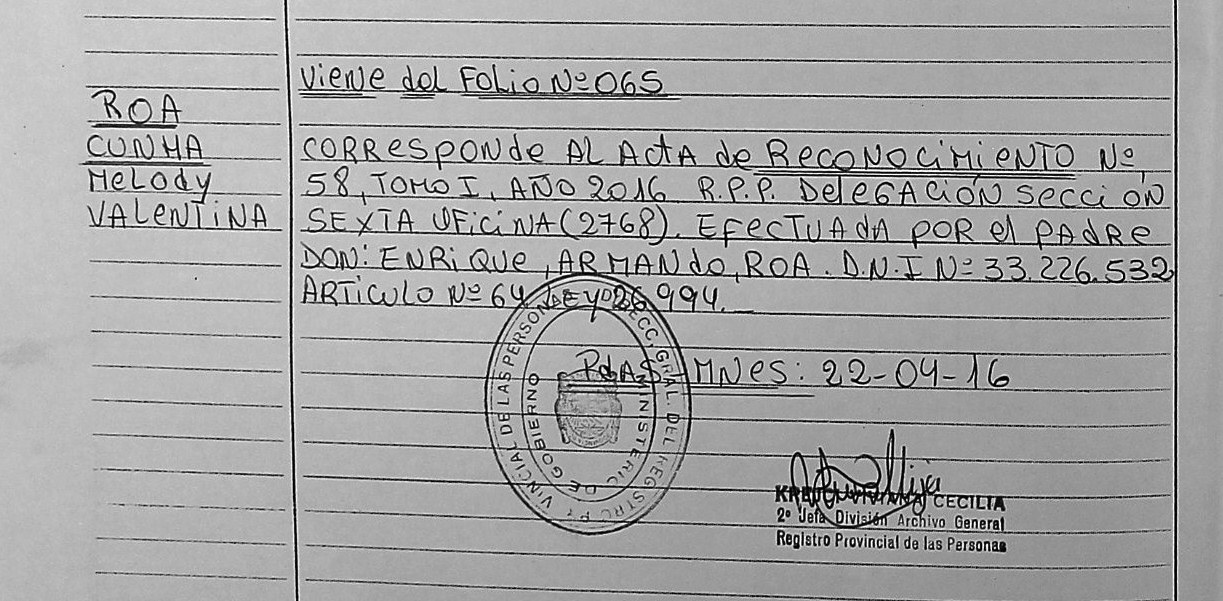 Viene del Folio Nº 065
ROA
CUNHA
Melody
VALENTINA
CORResponde AL ActA de ReCONOCiMiENTO Nº
58, TOMO I, AÑO 2016 R.P.P. DeleGACiÓN SecciÓN
SEXTA OFiCiNA (2768). EFecTUAdA POR el PADRE
DON: ENRiQUe, ARMANdo, ROA. D.N.I Nº 33.226.532
ARTiCULO Nº 64 LEY 26.994.
PdAS, MNeS: 22-04-16
DIRECC. GRAL. DEL REGISTRO PROVINCIAL DE LAS PERSONAS
MINISTERIO DE GOBIERNO
CECILIA
2º Jefa División Archivo General
Registro Provincial de las Personas